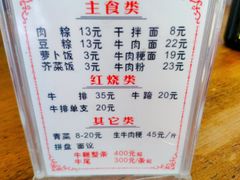 主食类
肉粽 13元 干拌面 8元
豆粽 13元 牛肉面 22元
萝卜饭 3元 牛肉粳面 19元
芥菜饭 3元 牛肉粉 23元
红烧类
牛排 35元 牛蹄 20元
牛排单支 20元
其它类
青菜 8-20元 生牛肉粳 45元/斤
拼盘 面议
牛鞭整条 400元
牛尾 300元/条起